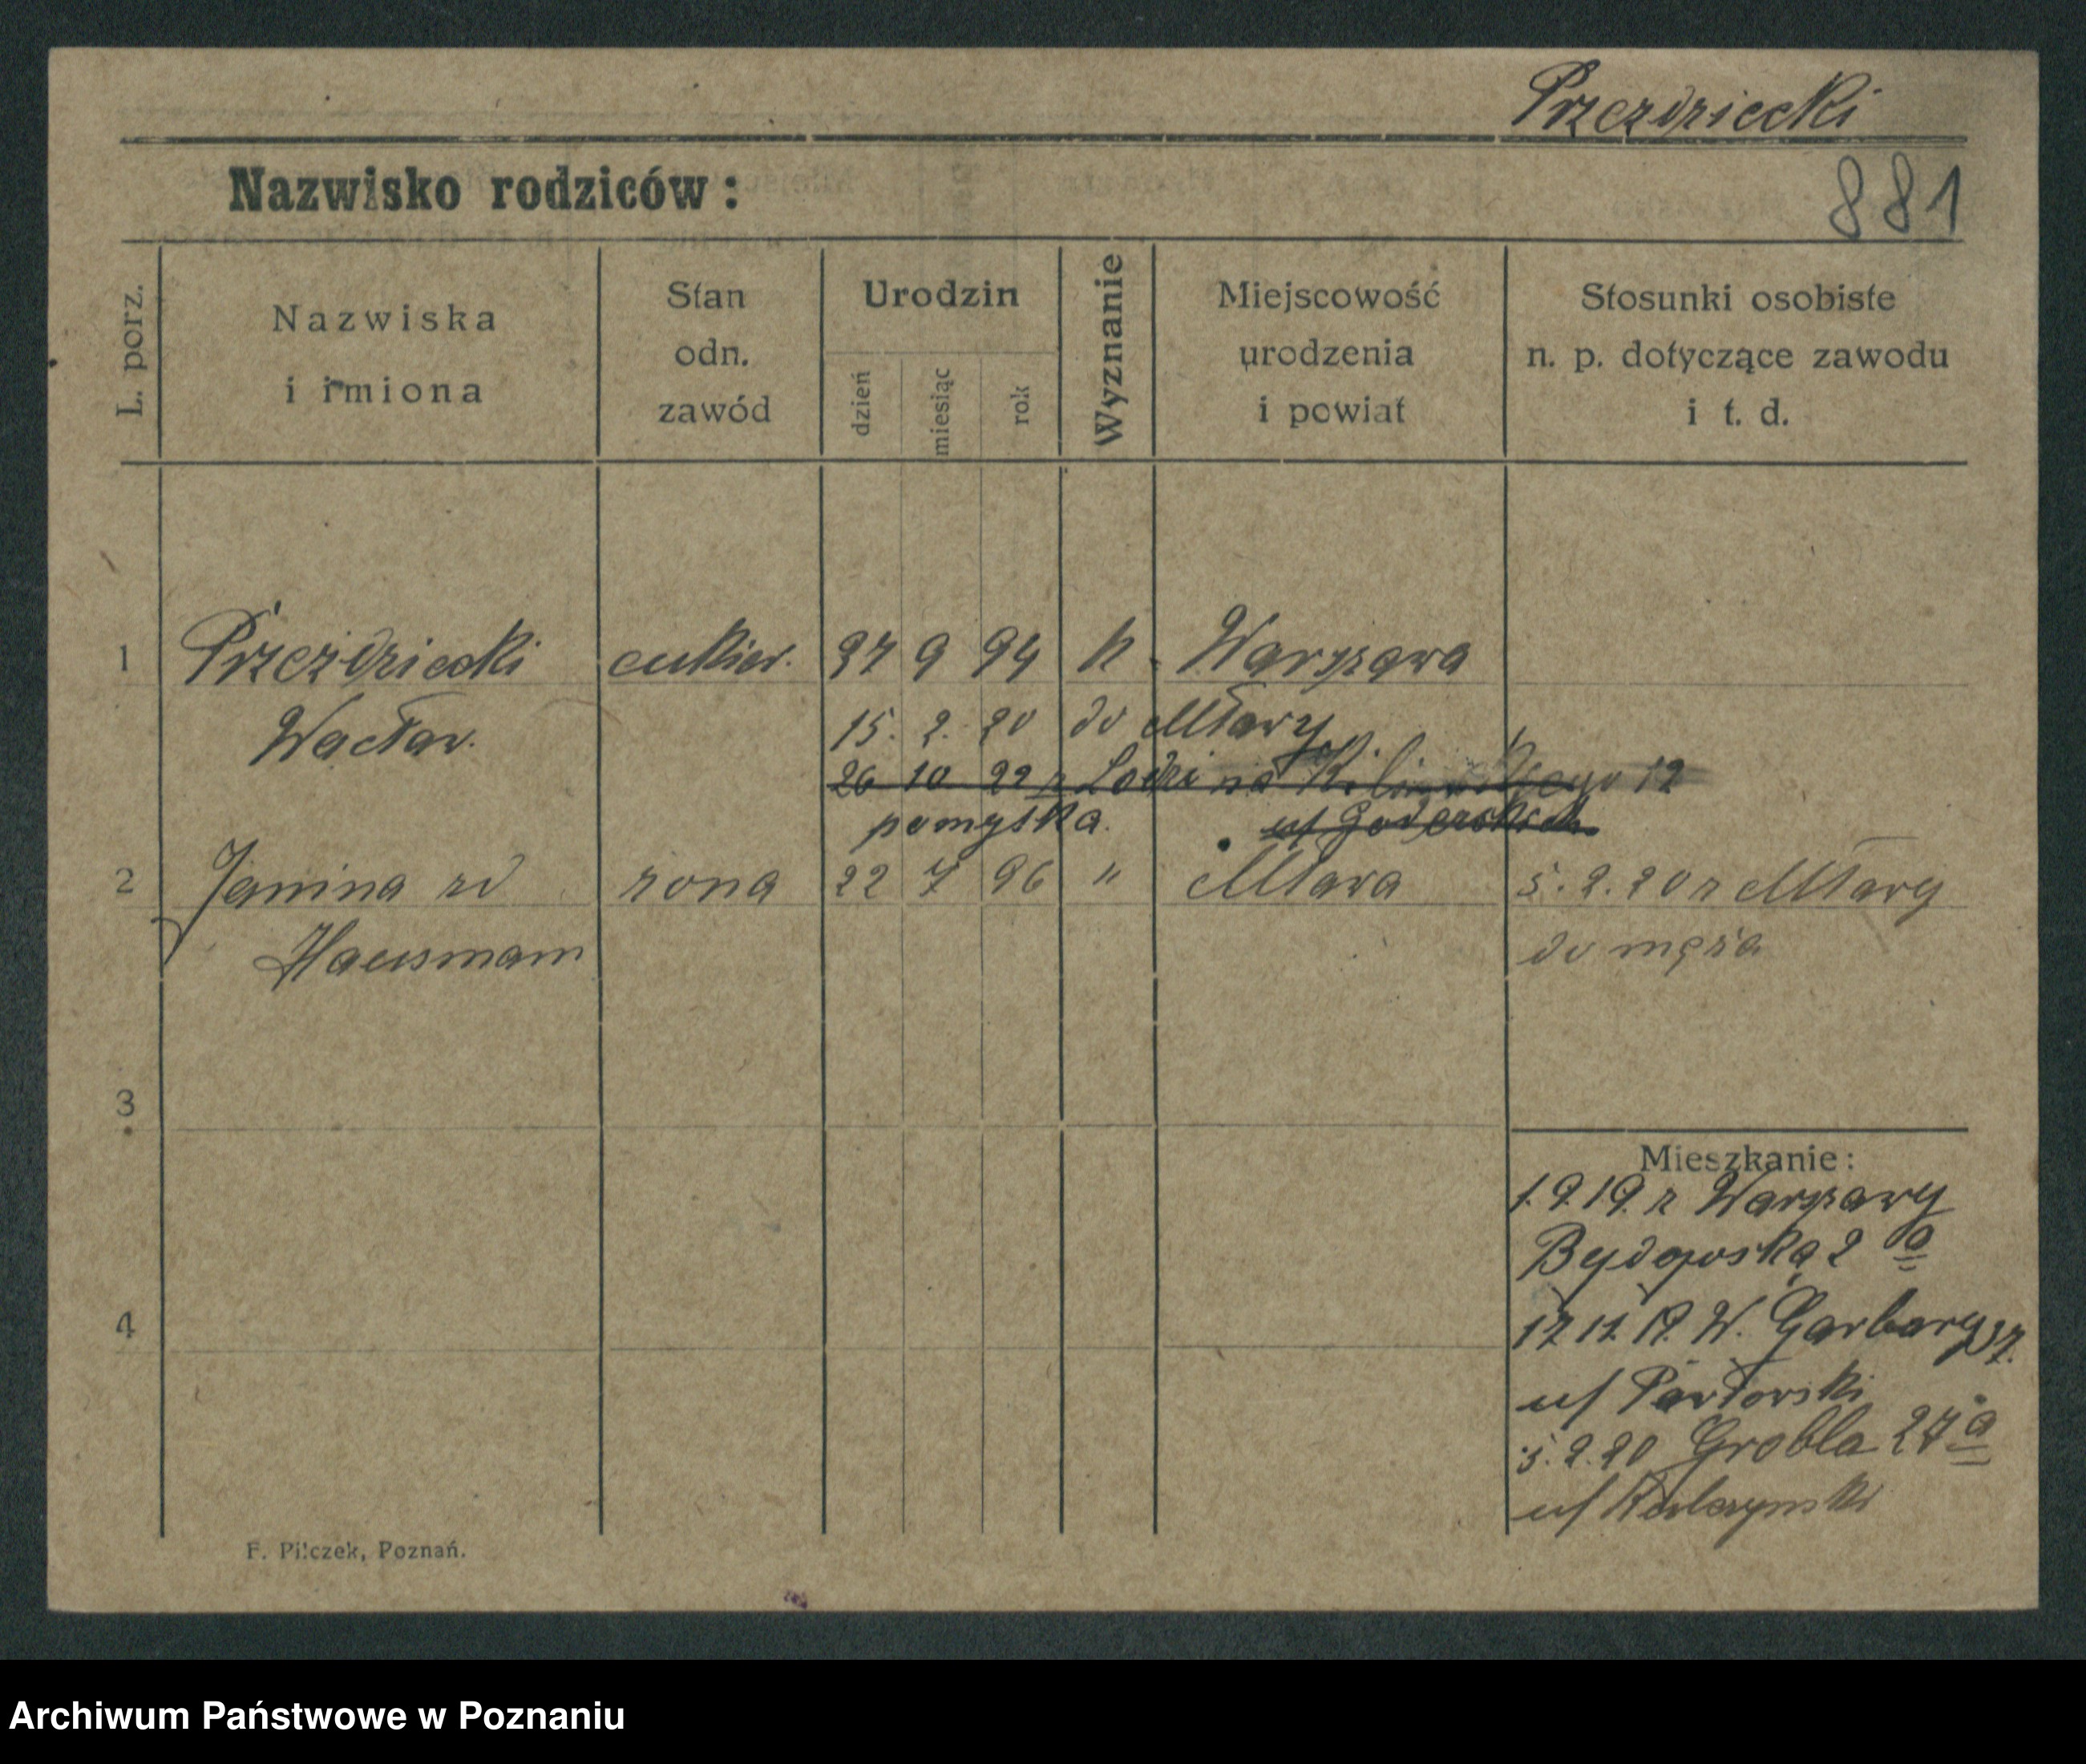 Przezdziecki
Nazwisko rodziców:
881
L. porz.
Nazwiska
i imiona
Stan
odn.
zawód
Urodzin
dzień
miesiąc
rok
Wyznanie
Miejscowość
urodzenia
i powiat
Stosunki osobiste
n. p. dotyczące zawodu
i t. d.
1 Przezdziecki cukier. 27 9 94 k Warszawa
Wacław. 15. 2. 20 do Mławy
26 10 22 z Łodzi na 12
pomyłka.
2 Janina zd żona 22 7 96 " Mława 5. 2. 20 z Mławy
Hausmann do męża
3
Mieszkanie:
1. 9. 19. z Warszawy
Bydgoska 2 a
4
17 11. 19. W. Garbary 37.
u/ Pawłowski
5. 2. 20 Grobla 27 a
u/
F. Pilczek, Poznań.
Archiwum Państwowe w Poznaniu